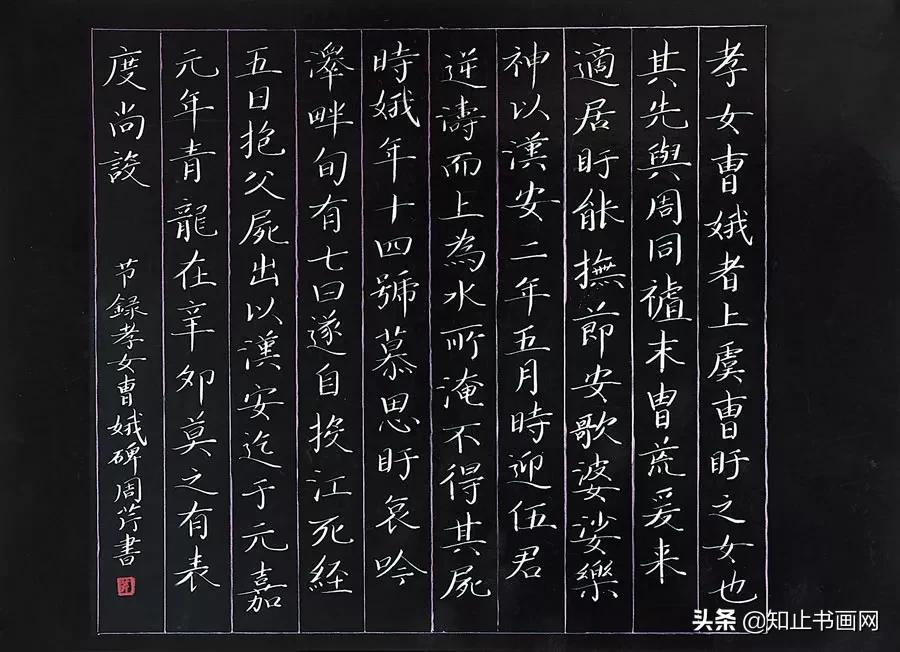 孝女曺娥者上虞曺盱之女也
其先與周同禇末胄荒爰来
適居盱能撫節安歌婆娑樂
神以漢安二年五月時迎伍君
逆濤而上為水所淹不得其屍
時娥年十四號慕思盱哀吟
澤畔旬有七日遂自投江死經
五日抱父屍出以漢安迄于元嘉
元年青龍在辛卯莫之有表
度尚設
节録孝女曺娥碑周芹書
头条@知止书画网